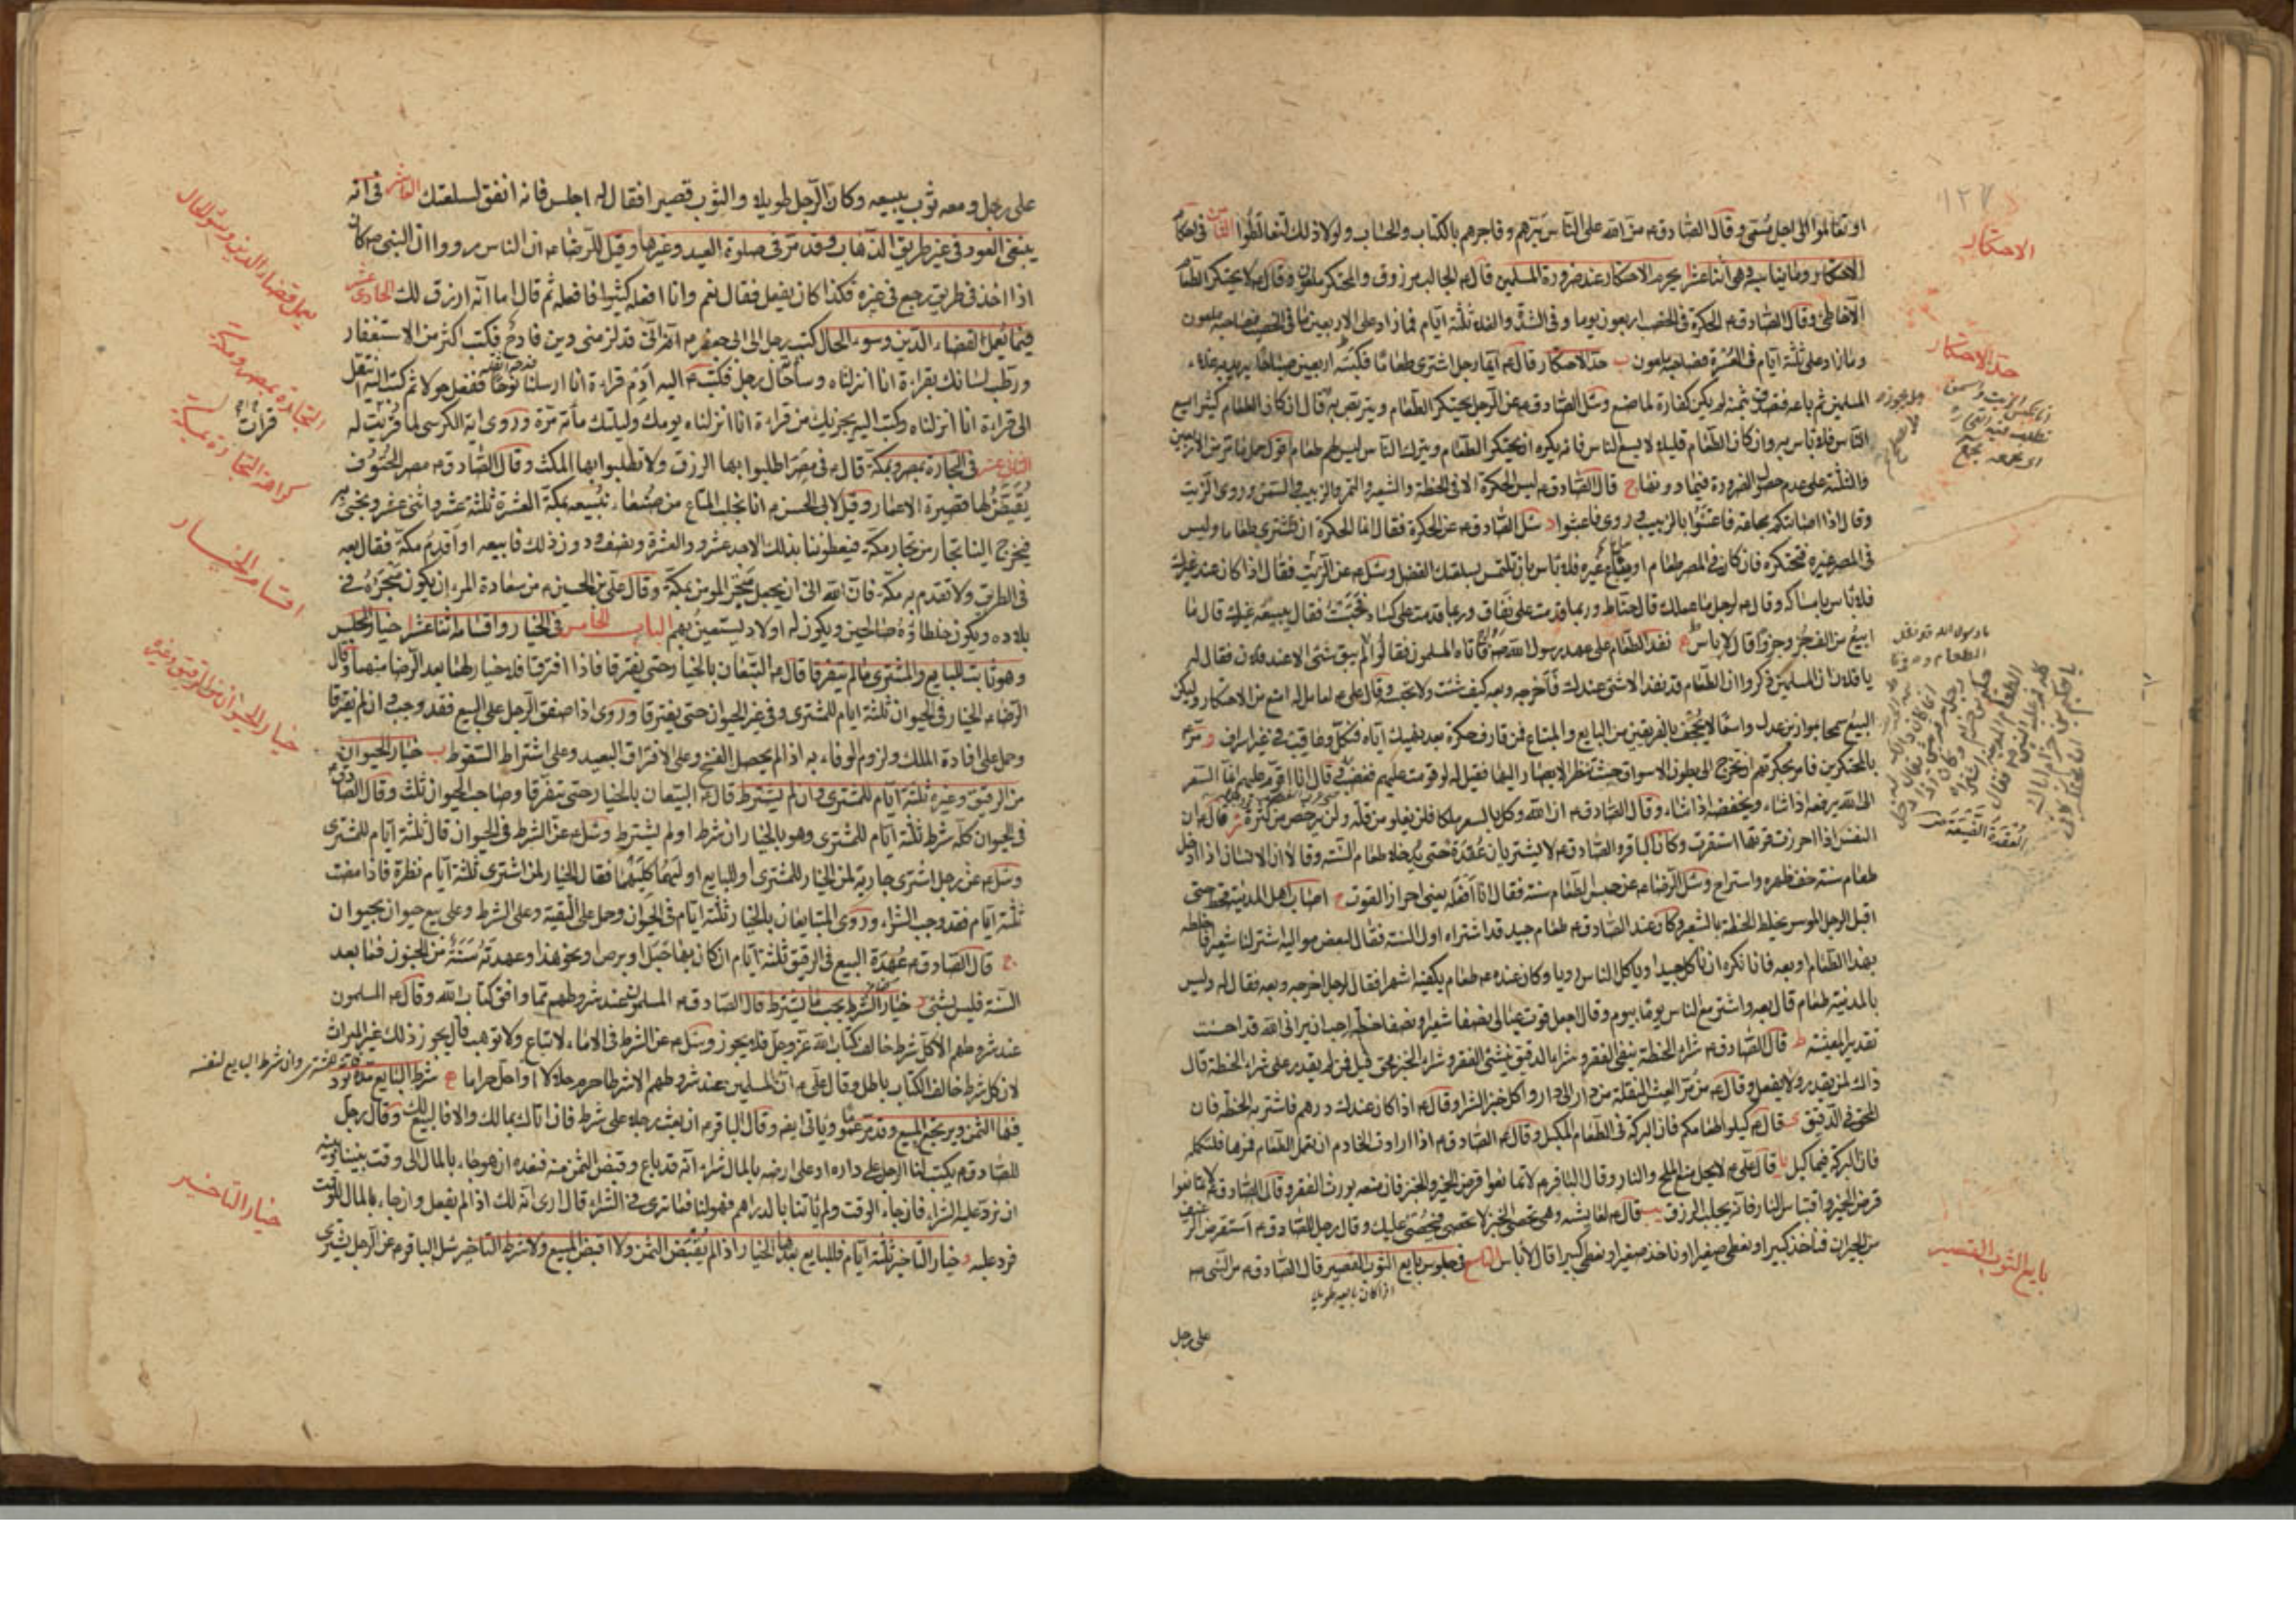 ١٢٧
الاحتكار
او تعاملوا الى اجل مسمى وقال الصادق ع من الله على الناس برهم وفاجرهم بالكتاب والحساب ولولا ذلك لتغالطوا الثامن في احكام
الاحتكار وما يناسبه وهي اثنا عشر يحرم الاحتكار عند ضرورة المسلمين قال ع الجالب مرزوق والمحتكر ملعون وقال ع لا يحتكر الطعام
الا خاطئ وقال الصادق ع الحكرة في الخصب اربعون يوما وفي الشدة والبلاء ثلثة ايام فما زاد على الاربعين يوما في الخصب فصاحبه ملعون
وما زاد على ثلثة ايام في العسرة فصاحبه ملعون ب حد الاحتكار قال ع ايما رجل اشترى طعاما فكبسه اربعين صباحا يريد به غلاء
حد الاحتكار
المسلمين ثم باعه فتصدق بثمنه لم يكن كفارة لما صنع وسئل الصادق ع عن الرجل يحتكر الطعام ويتربص به قال ان كان الطعام كثيرا يسع
الناس فلا باس به وان كان الطعام قليلا لا يسع الناس فانه يكره ان يحتكر الطعام ويترك الناس ليس لهم طعام
والثلثة على عدم حصول الضرورة فيما دونها ج قال الصادق ع ليس الحكرة الا في الحنطة والشعير والتمر والزبيب والسمن وروى الزيت
د سئل الصادق ع عن الحكرة فقال انما الحكرة ان تشترى طعاما وليس
في المصر غيره فتحتكره فان كان في المصر طعام او يباع غيره فلا باس بان تلتمس بسلعتك الفضل وسئل ع عن الزيت فقال اذا كان عند غيرك
فلا باس بامساكه وقال ع لرجل ما عملك قال حناط وربما قدمت على نفاق وربما قدمت على كساد فحبست فقال يبيعه غيرك قال ما
ابيع من الف جزء جزءا قال لا باس ه نفد الطعام على عهد رسول الله ص فاتاه المسلمون فقالوا لم يبق شئ الا عند فلان فقال له
يا فلان ان المسلمين ذكروا ان الطعام قد نفد الا شئ عندك فاخرجه وبعه كيف شئت ولا تحبسه وقال على ع لعامل له امنع من الاحتكار وليكن
البيع سمحا بموازين عدل واسعا لا يجحف بالفريقين من البايع والمبتاع فمن قارف حكرة بعد نهيك اياه فنكل وعاقب في غير اسراف و مر ع
بالمحتكرين فامر بحكرتهم ان تخرج الى بطون الاسواق حيث تنظر الابصار اليها فقيل له لو قومت عليهم فغضب ثم قال انا اقوم عليهم انما السعر
الى الله يرفعه اذا شاء ويخفضه اذا شاء وقال الصادق ع ان الله وكل بالسعر ملكا فلن يغلو من قلة ولن يرخص من كثرة ز قال ع ان
النفس اذا احرزت قوتها استقرت وكان الباقر والصادق ع لا يشتريان عقدة حتى يدخلا طعام السنة وقالا ان الانسان اذا ادخل
طعام سنة خف ظهره واستراح وسئل الرضا ع عن حبس الطعام سنة فقال انا افعله يعني احراز القوت ح اصاب اهل المدينة قحط حتى
اقبل الرجل الموسر يخلط الحنطة بالشعير وكان عند الصادق ع طعام جيد قد اشتراه اول السنة فقال لبعض مواليه اشتر لنا شعيرا فاخلطه
بهذا الطعام او بعه فانا نكره ان ناكل جيدا وياكل الناس رديا وكان عنده ع طعام يكفيه اشهرا فقال لرجل اخرجه وبعه فقال له وليس
بالمدينة طعام قال بعه واشتر مع الناس يوما بيوم وقال اجعل قوت عيالى نصفا شعيرا ونصفا حنطة احب ان يراني الله قد احسنت
تقدير المعيشة ط قال الصادق ع شراء الحنطة ينفى الفقر وشراء الدقيق ينشئ الفقر وشراء الخبز محق قيل فمن لم يقدر على شراء الحنطة قال
ذاك لمن يقدر ولا يفعل وقال ع من مر العيش النقلة من دار الى دار واكل خبز الشرا وقال ع اذا كان عندك درهم فاشتر به الحنطة فان
المحق في الدقيق ى قال ع كيلوا طعامكم فان البركة في الطعام المكيل وقال الصادق ع اذا ارادت الخادم ان تعمل الطعام فمرها فلتكله
فان البركة فيما كيل يا قال على ع لا يحل منع الملح والنار وقال الباقر ع لا تمانعوا قرض الخمير والخبز فان منعه يورث الفقر وقال الصادق ع لا تمانعوا
قرض الخمير واقتباس النار فانه يجلب الرزق يب قال ع لعايشة وهي تحصى الخبز لا تحصى فيحصى عليك وقال رجل للصادق ع استقرض الرغيف
من الجيران فناخذ كبيرا ونعطى صغيرا وناخذ صغيرا ونعطى كبيرا قال لا باس التاسع في جلوس بايع الثوب القصير قال الصادق ع مر النبي ص
اذا كان بايعه طويلا
بايع الثوب القصير
على رجل
على رجل ومعه ثوب يبيعه وكان الرجل طويلا والثوب قصيرا فقال له اجلس فانه انفق لسلعتك العاشر في انه
ينبغي العود في غير طريق الذهاب وقد مر في صلوة العيد وغيرها وقيل للرضا ع ان الناس رووا ان النبي ص كان
اذا اخذ في طريق رجع في غيره فكذا كان يفعل فقال نعم وانا افعله كثيرا فافعله ثم قال اما انه ارزق لك الحادى عشر
فيما يعمل لقضاء الدين وسوء الحال كتب رجل الى ابى جعفر ع انه قد لزمنى دين فادح فكتب اكثر من الاستغفار
ورطب لسانك بقراءة انا انزلناه وساء حال رجل فكتب ع اليه ادم قراءة انا ارسلنا نوحا الى قومه ففعل حولا ثم كتب اليه انتقل
الى قراءة انا انزلناه وكتب اليه يجزيك من قراءة انا انزلناه يومك وليلتك مائة مرة وروى اية الكرسى لما قرئت له
الثاني عشر في التجارة بمصر وبمكة قال ع في مصر اطلبوا بها الرزق ولا تطلبوا بها المكث وقال الصادق ع مصر الحتوف
يقيض لها قصيرة الاعمار وقيل لابى الحسن ع انا نجلب المتاع من صنعاء نبيعه بمكة العشرة ثلثة عشر واثنى عشر ونجئ به
فيخرج الينا تجار من تجار مكة فيعطوننا بذلك الاحد عشر والعشرة ونصف ودون ذلك فابيعه او اقدم مكة فقال بعه
في الطريق ولا تقدم به مكة فان الله ابى ان يجعل متجر المومن بمكة وقال على بن الحسين ع من سعادة المرء ان يكون متجره في
بلاده ويكون خلطاؤه صالحين ويكون له اولاد يستعين بهم الباب الخامس في الخيار واقسامه اثنا عشر ا خيار المجلس
وهو ثابت للبايع والمشترى ما لم يتفرقا قال ع البيعان بالخيار حتى يفترقا فاذا افترقا فلا خيار لهما بعد الرضا منهما وقال
الرضا ع الخيار في الحيوان ثلثة ايام للمشترى وفي غير الحيوان حتى يفترقا وروى اذا صفق الرجل على البيع فقد وجب وان لم يفترقا
وحمل على افادة الملك ولزوم الوفاء به اذا لم يحصل الفسخ وعلى الافتراق البعيد وعلى اشتراط السقوط ب خيار الحيوان
من الرقيق وغيره ثلثة ايام للمشترى وان لم يشترط قال ع البيعان بالخيار حتى يتفرقا وصاحب الحيوان ثلث وقال الصادق ع
في الحيوان كله شرط ثلثة ايام للمشترى وهو بالخيار ان شرط او لم يشترط وسئل ع عن الشرط في الحيوان قال ثلثة ايام للمشترى
وسئل ع عن رجل اشترى جارية لمن الخيار للمشترى او للبايع او لهما كليهما فقال الخيار لمن اشترى ثلثة ايام نظرة فاذا مضت
ثلثة ايام فقد وجب الشراء وروى المتبايعان بالخيار ثلثة ايام في الحيوان وحمل على التقية وعلى الشرط وعلى بيع حيوان بحيوان
ج قال الصادق ع عهدة البيع في الرقيق ثلثة ايام ان كان بها حبل او برص او نحو هذا وعهدته سنة من الجنون فما بعد
السنة فليس بشئ د خيار الشرط بحسب ما يشترط قال الصادق ع المسلمون عند شروطهم مما وافق كتاب الله وقال ع المسلمون
عند شروطهم الا كل شرط خالف كتاب الله عز وجل فلا يجوز وسئل ع عن الشرط في الاماء لا تباع ولا توهب قال يجوز ذلك غير الميراث
لان كل شرط خالف الكتاب باطل وقال على ع ان المسلمين عند شروطهم الا شرطا حرم حلالا او احل حراما ه شرط البايع مدة يرد
فيها الثمن ويرتجع المبيع وقد مر عموما وياتى ايضا وقال الباقر ع ان بعت رجلا على شرط فان اتاك بمالك والا فالبيع لك وقال رجل
للصادق ع يكتب لنا الرجل على داره او على ارضه بالمال شراء انه قد باع وقبض الثمن منه فنعده ان هو جاء بالمال الى وقت بيننا وبينه
ان نرد عليه الشراء فان جاء الوقت ولم ياتنا بالدراهم فهو لنا فما ترى في الشراء قال ارى انه لك اذا لم يفعل وان جاء بالمال للوقت
فرد عليه و خيار التاخير ثلثة ايام فللبايع بعدها الخيار اذا لم يقبض الثمن ولا اقبض المبيع ولا شرط التاخير سئل الباقر ع عن الرجل يشترى
يعمل قضاء الدين وسوء الحال
التجارة بمصر ومكة
كراهة التجارة بمكة
اقسام الخيار
خيار الحيوان من الرقيق وغيره
خيار التاخير